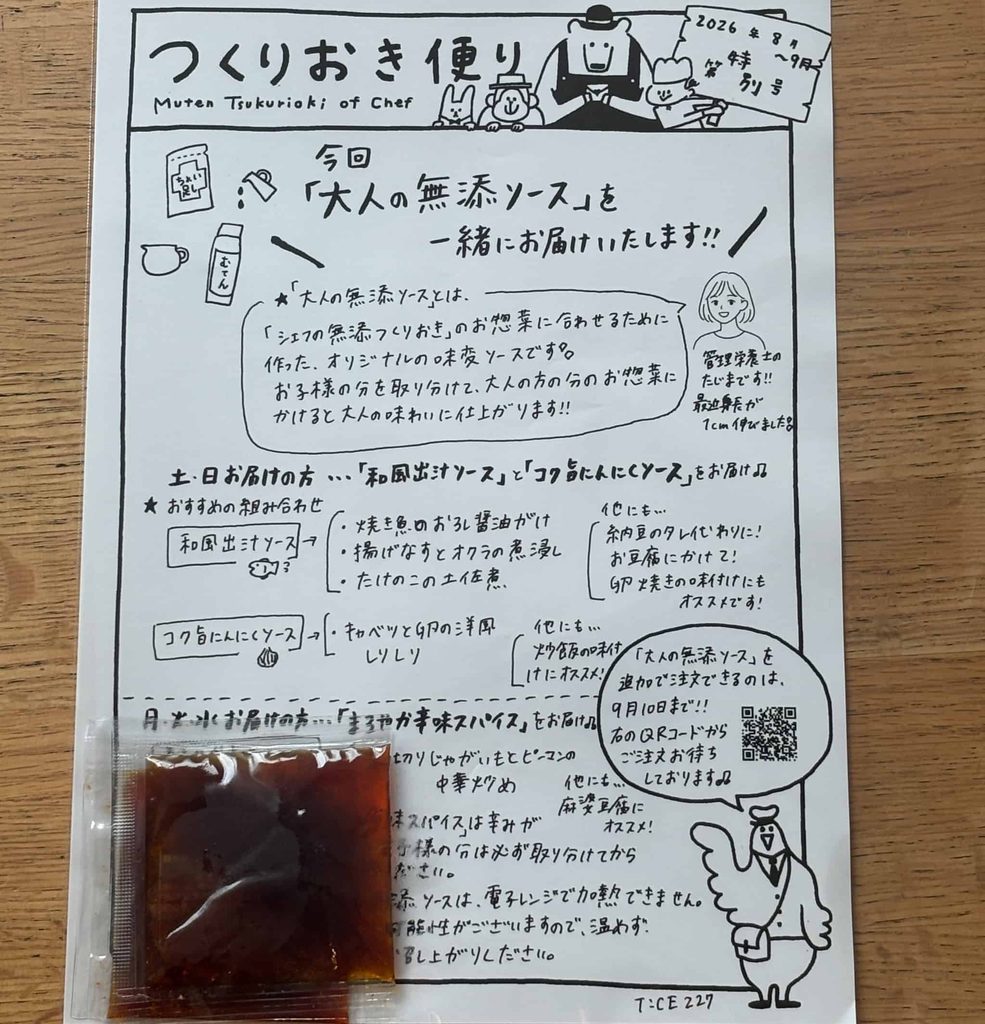 つくりおき便り
Muten Tsukurioki of Chef
2026年8月
〜9月
特別号
ちょい足し
むてん
今回
「大人の無添ソース」を
一緒にお届けいたします!!
★「大人の無添ソース」とは、
「シェフの無添つくりおき」のお惣菜に合わせるために
作った、オリジナルの味変ソースです。
お子様の分を取り分けて、大人の方の分のお惣菜に
かけると大人の味わいに仕上がります!!
管理栄養士の
たじまです!!
最近身長が
1cm伸びました♪
土・日お届けの方…「和風出汁ソース」と「コク旨にんにくソース」をお届け♫
★おすすめの組み合わせ
和風出汁ソース→
・焼き魚のおろし醤油がけ
・揚げなすとオクラの煮浸し
・たけのこの土佐煮
他にも…
納豆のタレ代わりに!
お豆腐にかけて!
卵焼きの味付けにも
オススメです!
コク旨にんにくソース→
・キャベツと卵の洋風
しりしり
他にも…
炒飯の味付
けにオススメ!
「大人の無添ソース」を
追加で注文できるのは、
9月10日まで!!
右のQRコードから
ご注文お待ち
しております♫
月・火・水お届けの方…「まろやか辛味スパイス」をお届け♫
切りじゃがいもとピーマンの
中華炒め
他にも…
麻婆豆腐に
オススメ!
味スパイス」は辛みが
子様の分は必ず取り分けてから
ださい。
添ソースは、電子レンジで加熱できません。
可能性がございますので、温めず
召し上がりください。
T:CE227